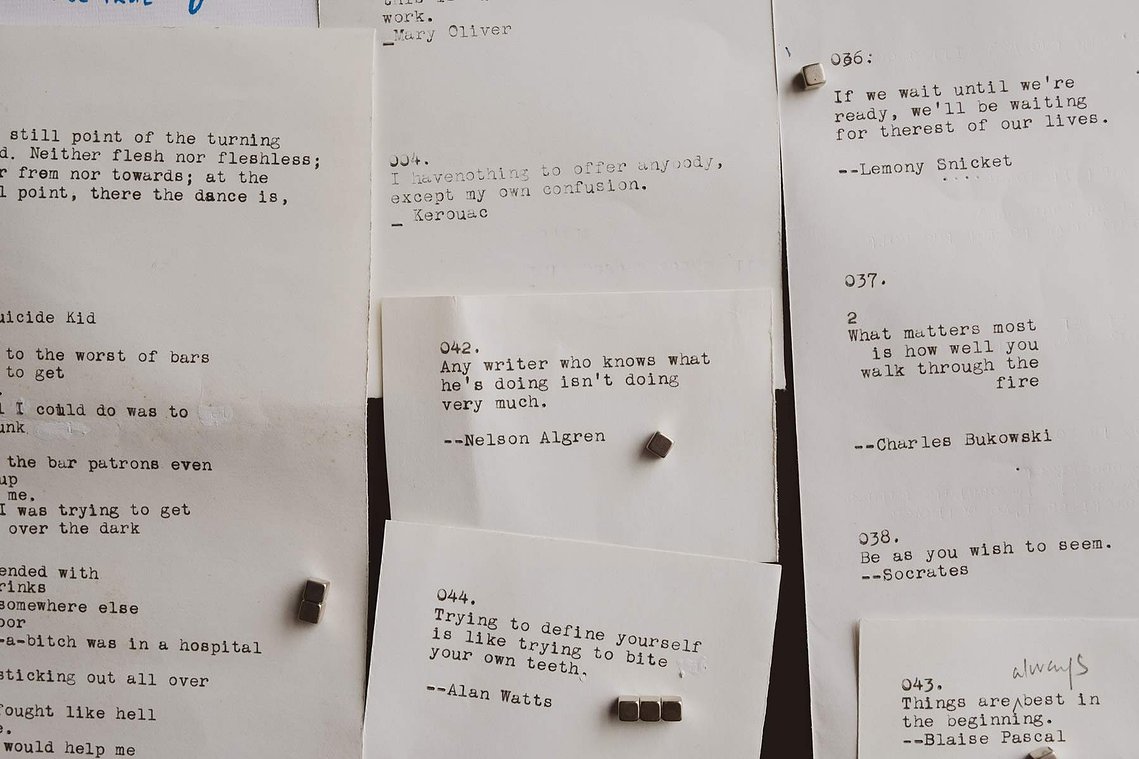 still point of the turning
d. Neither flesh nor fleshless;
r from nor towards; at the
l point, there the dance is,
uicide Kid
to the worst of bars
to get
l I could do was to
unk
the bar patrons even
up
me.
I was trying to get
over the dark
ended with
rinks
somewhere else
oor
-a-bitch was in a hospital
sticking out all over
fought like hell
e.
would help me
work.
_Mary Oliver
004.
I havenothing to offer anybody,
except my own confusion.
_ Kerouac
042.
Any writer who knows what
he's doing isn't doing
very much.
--Nelson Algren
044.
Trying to define yourself
is like trying to bite
your own teeth.
--Alan Watts
036:
If we wait until we're
ready, we'll be waiting
for therest of our lives.
--Lemony Snicket
037.
2
What matters most
is how well you
walk through the
fire
--Charles Bukowski
038.
Be as you wish to seem.
--Socrates
043.
always
Things are best in
the beginning.
--Blaise Pascal